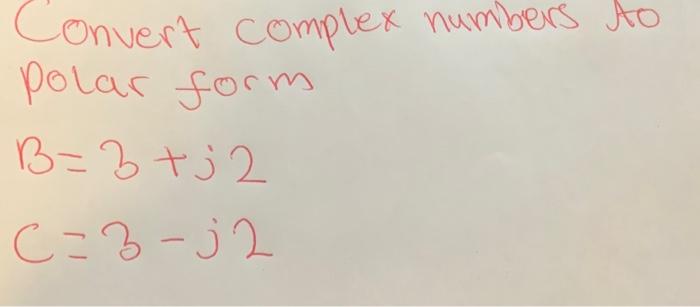 Convert complex numbers to
polar form
B = 3 + j2
C = 3 - j2